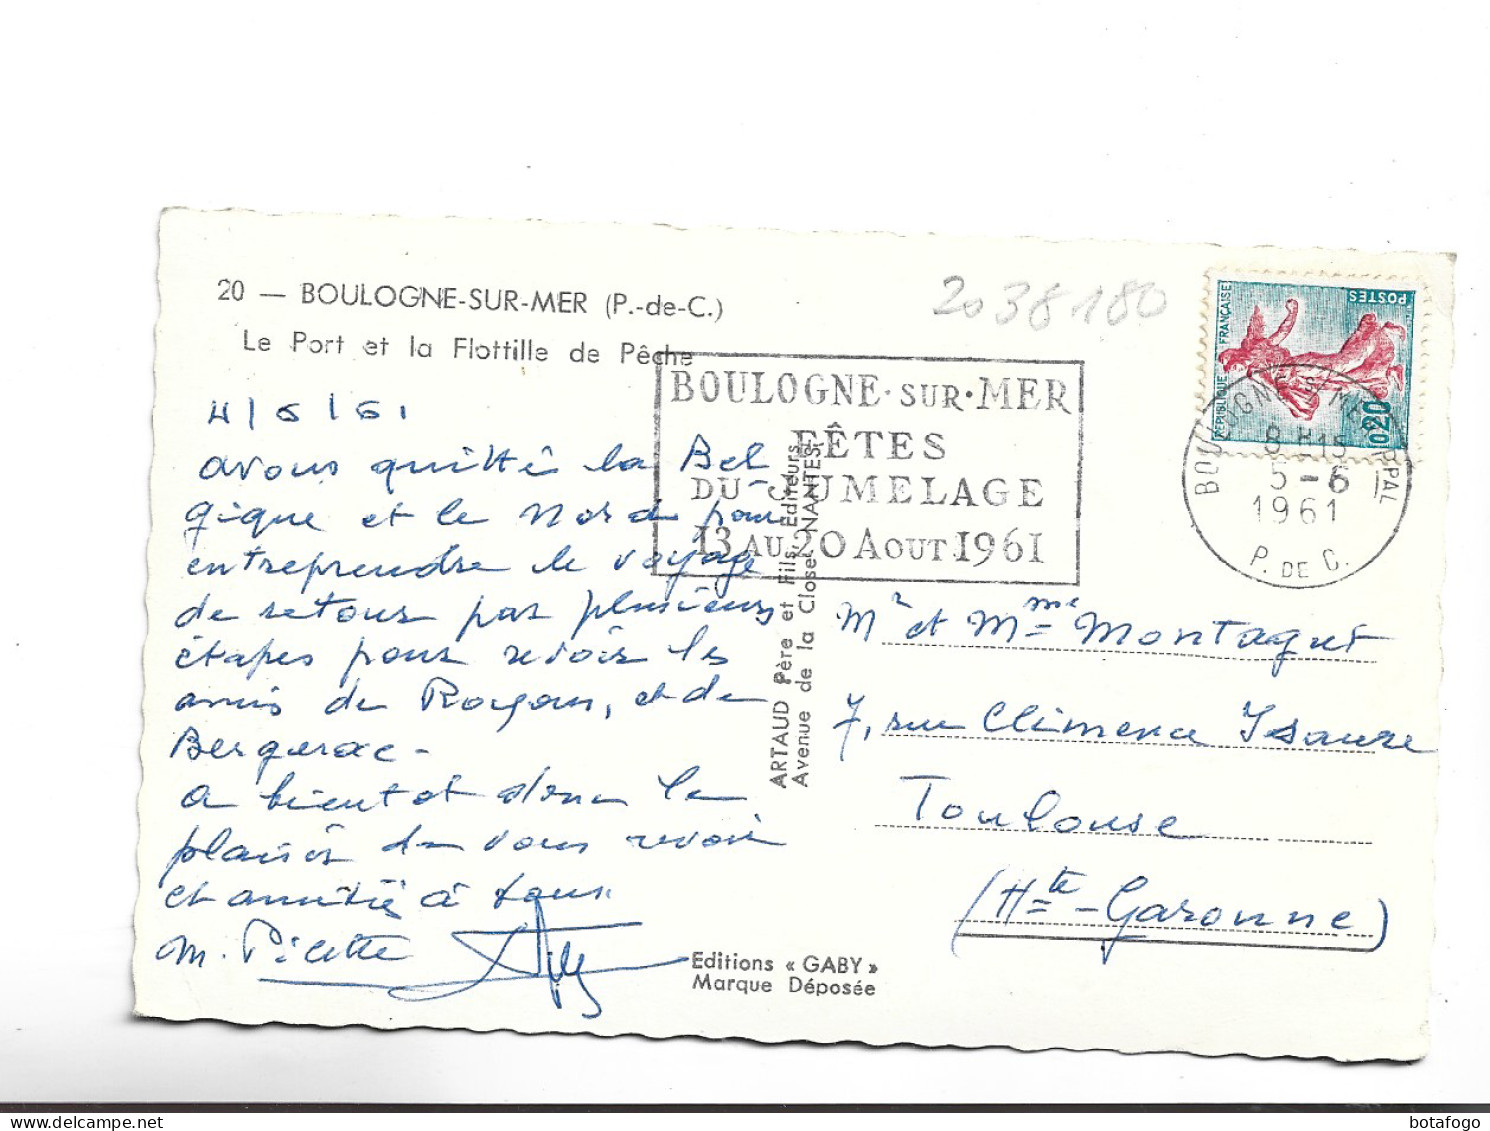 20 — BOULOGNE-SUR-MER (P.-de-C.)
Le Port et la Flottille de Pêche
4/6/61
avons quitté la Bel-
gique et le Nord pour
entreprendre le voyage
de retour par plusieurs
étapes pour revoir les
amis de Royan, et de
Bergerac -
a bientot donc le
plaisir de vous revoir
et amitiés à tous
M. Picette
2038180
BOULOGNE·SUR·MER
FÊTES
DU JUMELAGE
13 AU 20 AOUT 1961
RÉPUBLIQUE FRANÇAISE
POSTES
0,20
BOULOGNE S/ MER PPAL
8 H15
5 -6
1961
P. DE C.
ARTAUD Père et Fils, Editeurs
Avenue de la Close, NANTES
Mr et Mme Montagut
7, rue Clémence Isaure
Toulouse
(Hte-Garonne)
Editions « GABY »
Marque Déposée
botafogo